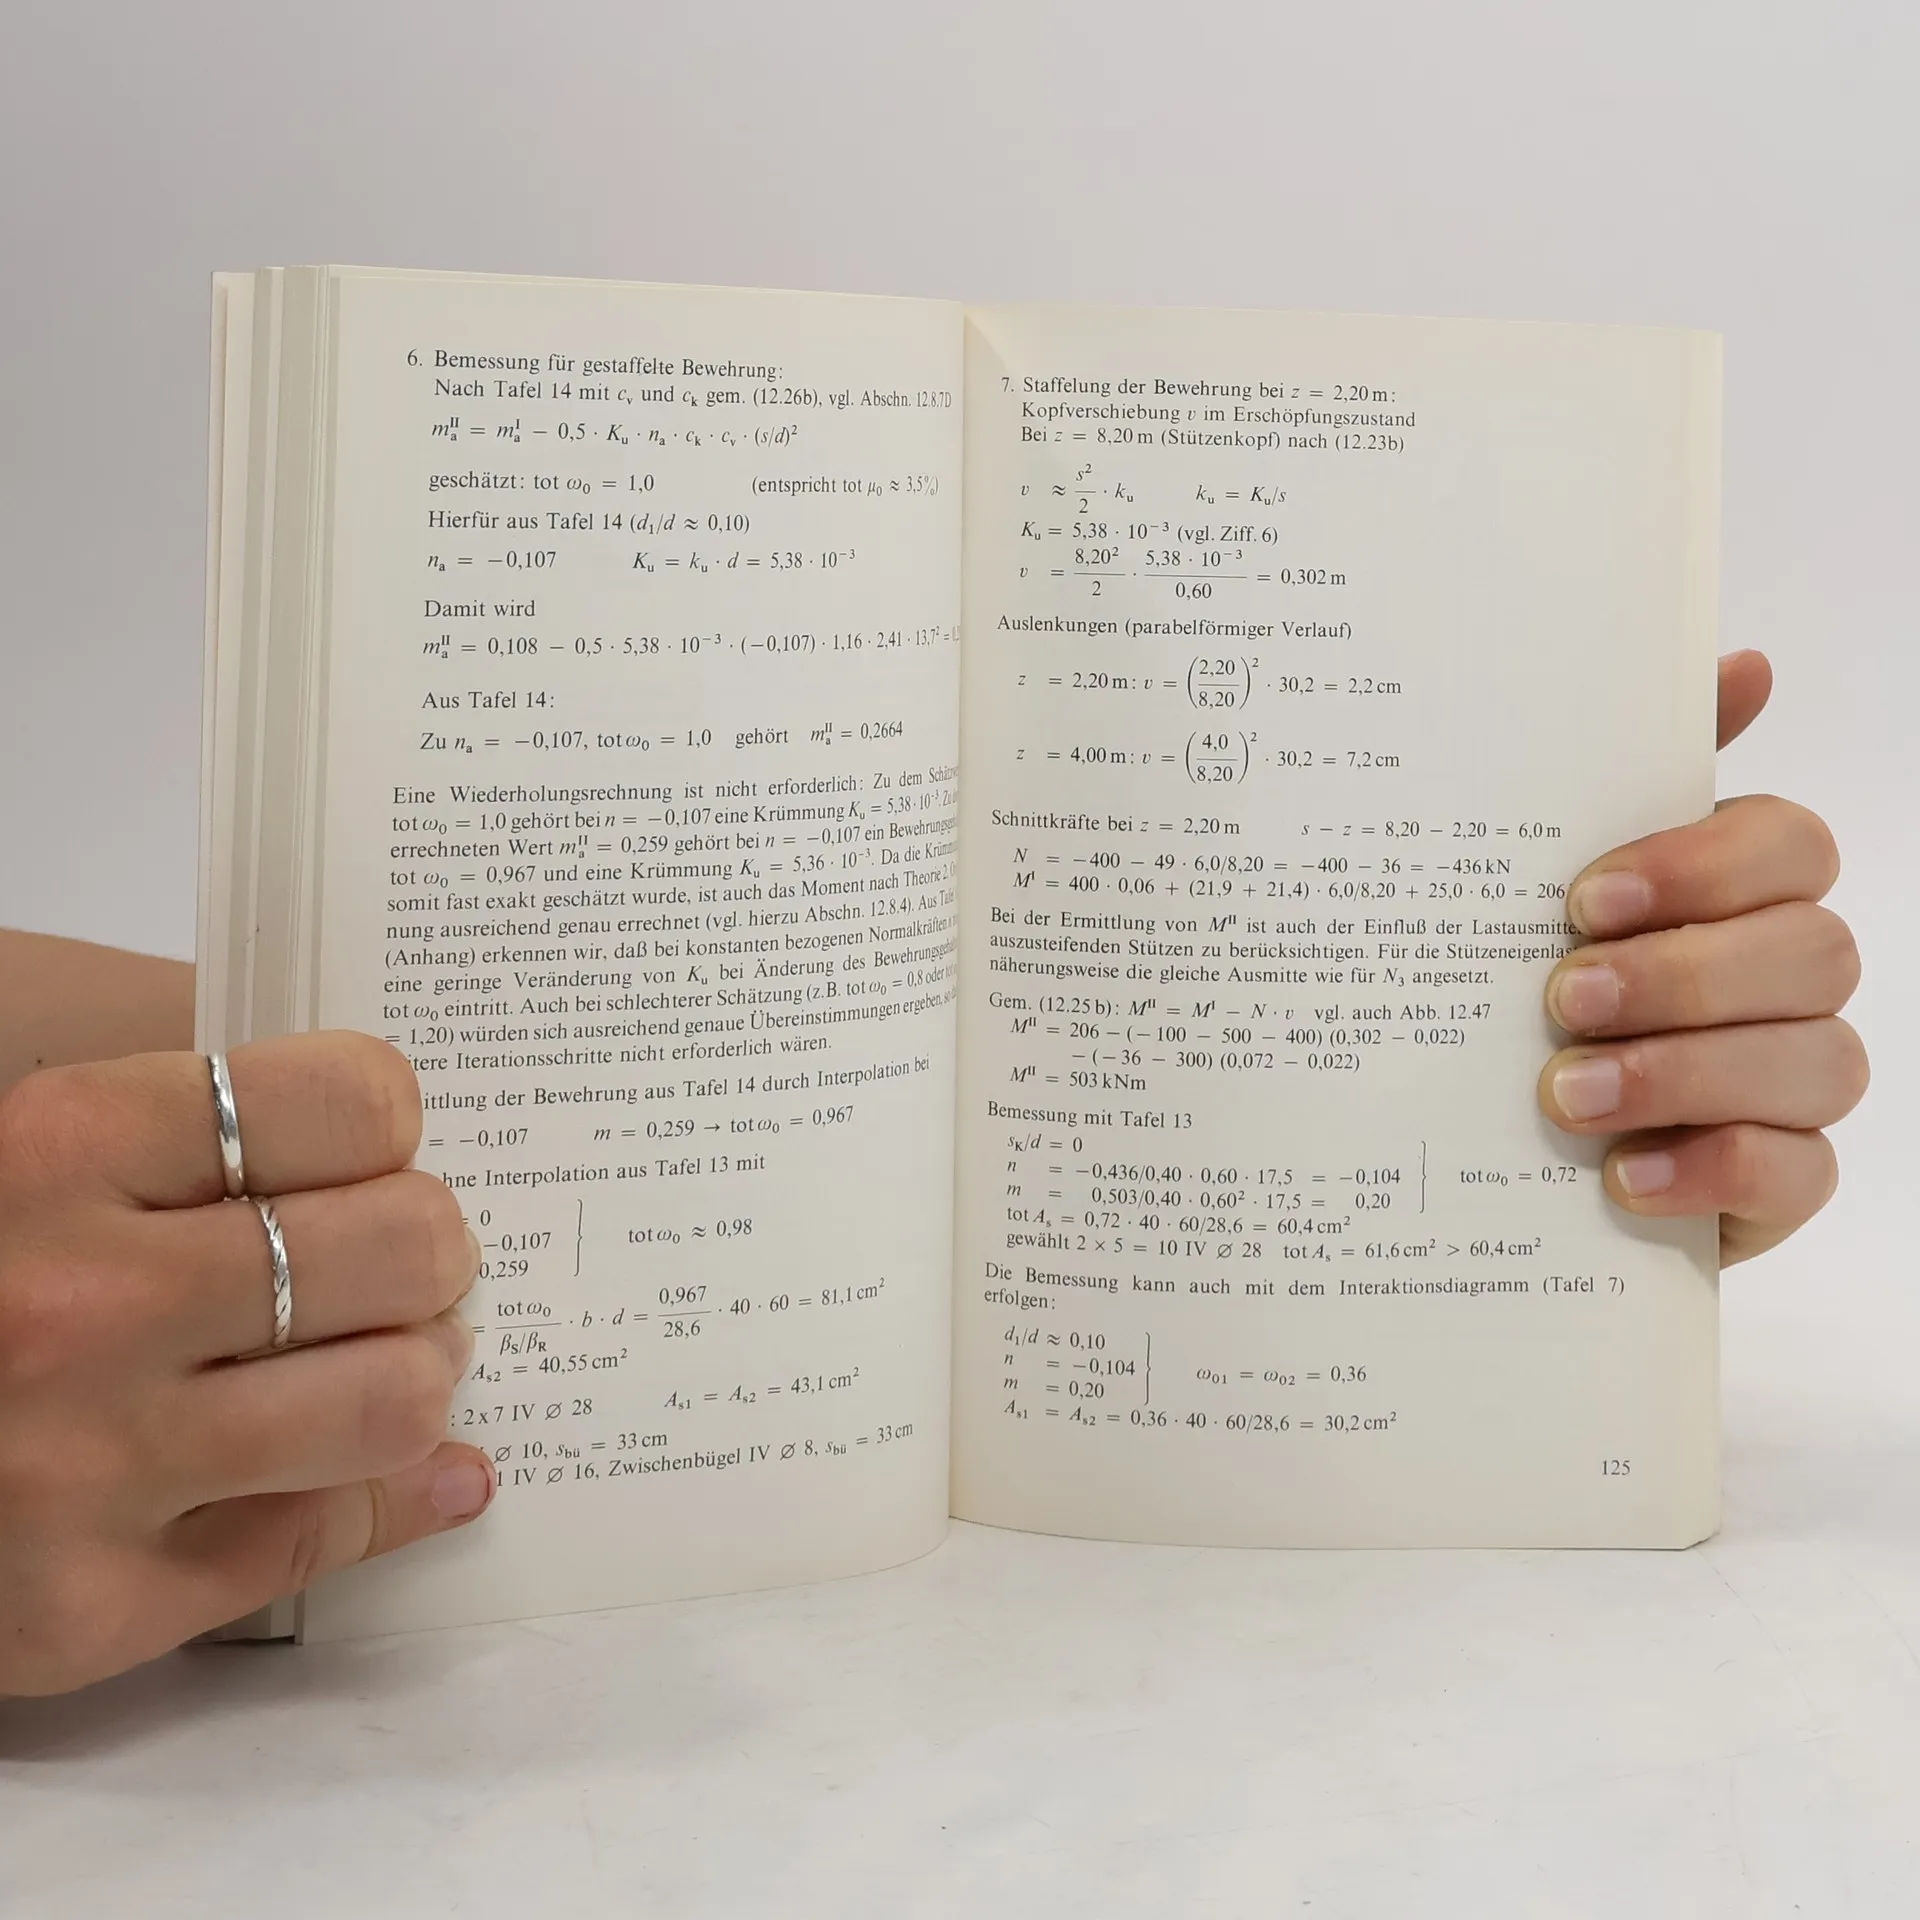 6. Bemessung für gestaffelte Bewehrung:
Nach Tafel 14 mit cᵥ und cₖ gem. (12.26b), vgl. Abschn. 12.8.7D
mₐᴵᴵ = mₐᴵ − 0,5 · Kᵤ · nₐ · cₖ · cᵥ · (s/d)²
geschätzt: tot ω₀ = 1,0 (entspricht tot μ₀ ≈ 3,5%)
Hierfür aus Tafel 14 (d₁/d ≈ 0,10)
nₐ = −0,107 Kᵤ = kᵤ · d = 5,38 · 10⁻³
Damit wird
mₐᴵᴵ = 0,108 − 0,5 · 5,38 · 10⁻³ · (−0,107) · 1,16 · 2,41 · 13,7² =
Aus Tafel 14:
Zu nₐ = −0,107, tot ω₀ = 1,0 gehört mₐᴵᴵ = 0,2664
Eine Wiederholungsrechnung ist nicht erforderlich: Zu dem
tot ω₀ = 1,0 gehört bei n = −0,107 eine Krümmung Kᵤ = 5,38 · 10⁻³. Zu
errechneten Wert mₐᴵᴵ = 0,259 gehört bei n = −0,107 ein
tot ω₀ = 0,967 und eine Krümmung Kᵤ = 5,36 · 10⁻³. Da die
somit fast exakt geschätzt wurde, ist auch das Moment nach Theorie 2.
nung ausreichend genau errechnet (vgl. hierzu Abschn. 12.8.4). Aus
(Anhang) erkennen wir, daß bei konstanten bezogenen Normalkräften
eine geringe Veränderung von Kᵤ bei Änderung des
tot ω₀ eintritt. Auch bei schlechterer Schätzung (z.B. tot ω₀ = 0,8 oder
= 1,20) würden sich ausreichend genaue Übereinstimmungen ergeben,
itere Iterationsschritte nicht erforderlich wären.
ittlung der Bewehrung aus Tafel 14 durch Interpolation bei
= −0,107 m = 0,259 → tot ω₀ = 0,967
hne Interpolation aus Tafel 13 mit
= 0
−0,107 } tot ω₀ ≈ 0,98
0,259
= tot ω₀/(βS/βR) · b · d = 0,967/28,6 · 40 · 60 = 81,1 cm²
Aₛ₂ = 40,55 cm²
: 2x7 IV ∅ 28 Aₛ₁ = Aₛ₂ = 43,1 cm²
∅ 10, sbü = 33 cm
1 IV ∅ 16, Zwischenbügel IV ∅ 8, sbü = 33 cm
7. Staffelung der Bewehrung bei z = 2,20 m:
Kopfverschiebung v im Erschöpfungszustand
Bei z = 8,20 m (Stützenkopf) nach (12.23b)
v ≈ s²/2 · kᵤ kᵤ = Kᵤ/s
Kᵤ = 5,38 · 10⁻³ (vgl. Ziff. 6)
v = 8,20²/2 · 5,38 · 10⁻³/0,60 = 0,302 m
Auslenkungen (parabelförmiger Verlauf)
z = 2,20 m: v = (2,20/8,20)² · 30,2 = 2,2 cm
z = 4,00 m: v = (4,0/8,20)² · 30,2 = 7,2 cm
Schnittkräfte bei z = 2,20 m s − z = 8,20 − 2,20 = 6,0 m
N = −400 − 49 · 6,0/8,20 = −400 − 36 = −436 kN
Mᴵ = 400 · 0,06 + (21,9 + 21,4) · 6,0/8,20 + 25,0 · 6,0 = 206
Bei der Ermittlung von Mᴵᴵ ist auch der Einfluß der Lastausmitte
auszusteifenden Stützen zu berücksichtigen. Für die Stützeneigenlas
näherungsweise die gleiche Ausmitte wie für N₃ angesetzt.
Gem. (12.25 b): Mᴵᴵ = Mᴵ − N · v vgl. auch Abb. 12.47
Mᴵᴵ = 206 − (− 100 − 500 − 400) (0,302 − 0,022)
− (− 36 − 300) (0,072 − 0,022)
Mᴵᴵ = 503 kNm
Bemessung mit Tafel 13
sK/d = 0
n = −0,436/0,40 · 0,60 · 17,5 = −0,104 } tot ω₀ = 0,72
m = 0,503/0,40 · 0,60² · 17,5 = 0,20
tot Aₛ = 0,72 · 40 · 60/28,6 = 60,4 cm²
gewählt 2 × 5 = 10 IV ∅ 28 tot Aₛ = 61,6 cm² > 60,4 cm²
Die Bemessung kann auch mit dem Interaktionsdiagramm (Tafel 7)
erfolgen:
d₁/d ≈ 0,10
n = −0,104 } ω₀₁ = ω₀₂ = 0,36
m = 0,20
Aₛ₁ = Aₛ₂ = 0,36 · 40 · 60/28,6 = 30,2 cm²
125